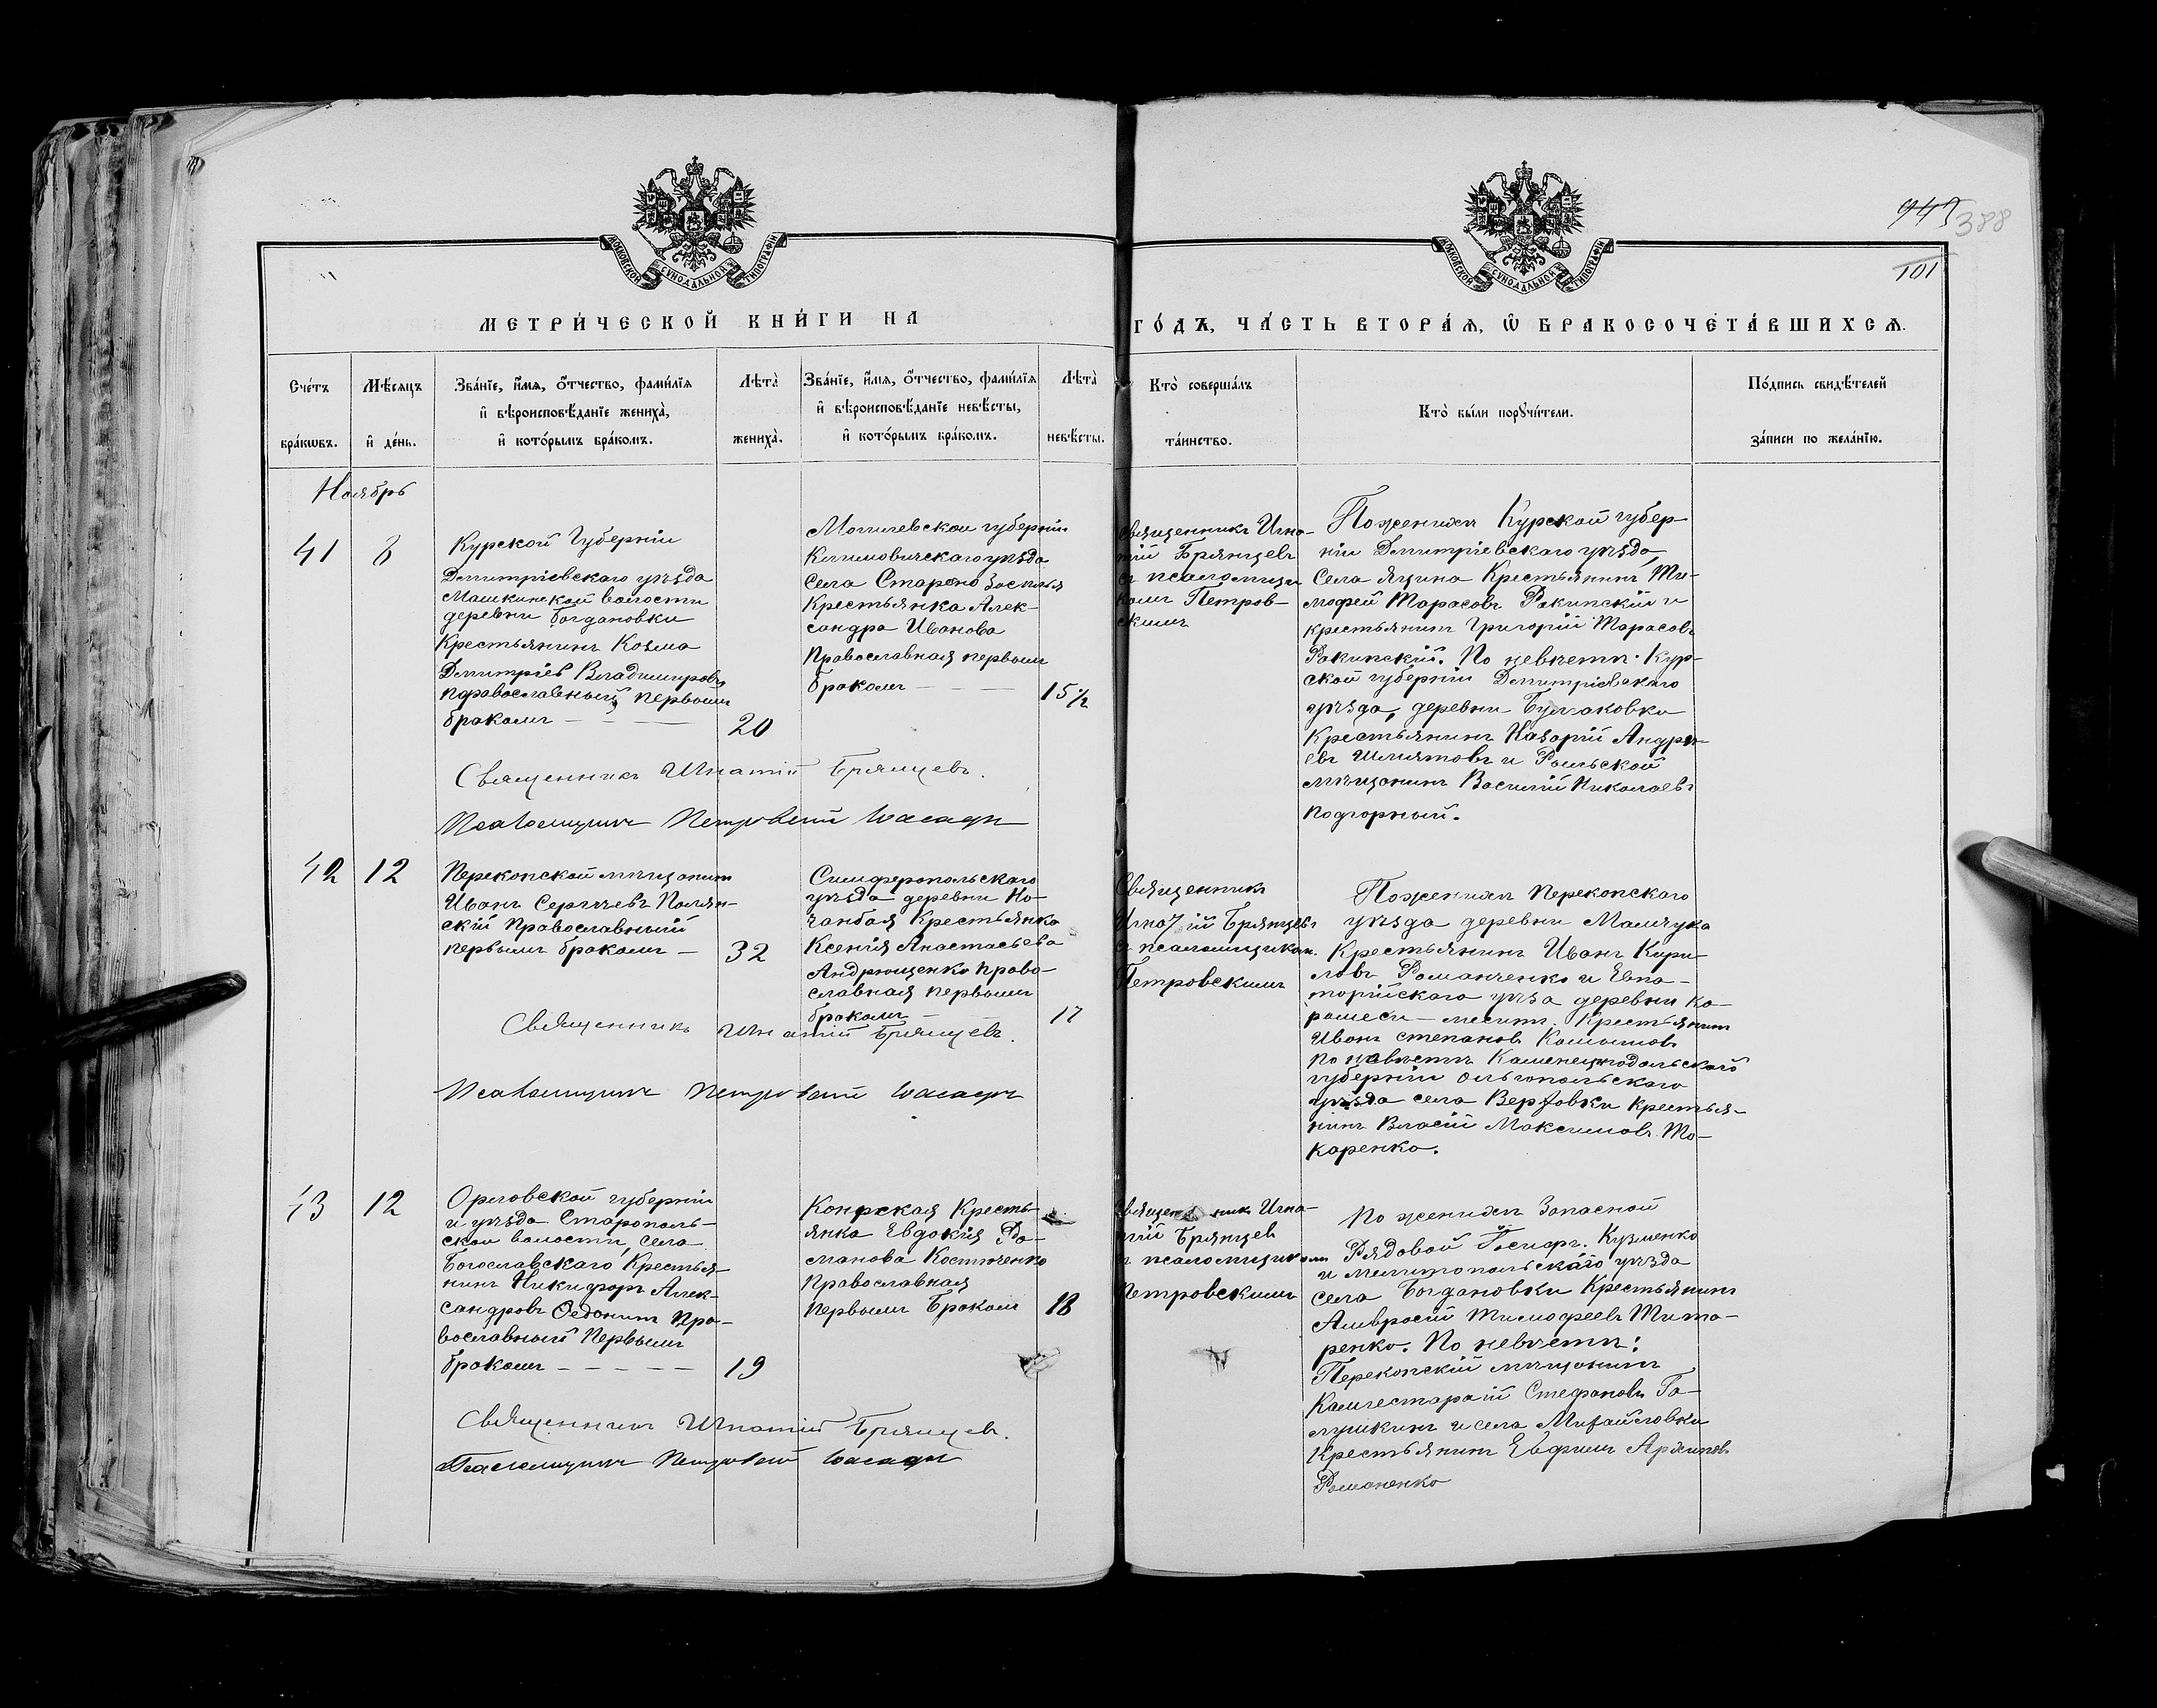 МОСКОВСКОЙ СѴНОДАЛЬНОЙ ТИПОГРАФІИ
МОСКОВСКОЙ СѴНОДАЛЬНОЙ ТИПОГРАФІИ
388
101
МЕТРИ́ЧЕСКОЙ КНИ́ГИ НА
ГО́ДЪ, ЧА́СТЬ ВТОРА́Ѧ, Ѽ БРАКОСОЧЕТА́ВШИХСѦ.
Сче́тъ
бра́кѡвъ.
Мѣ́сяцъ
и҆ де́нь.
Зва́нїе, и҆́мѧ, ѻ҆́тчество, фами́лїѧ
и҆ вѣроисповѣ́данїе жениха̀,
и҆ кото́рымъ бра́комъ.
Лѣта̀
жениха̀.
Зва́нїе, и҆́мѧ, ѻ҆́тчество, фами́лїѧ
и҆ вѣроисповѣ́данїе невѣ́сты,
и҆ кото́рымъ бра́комъ.
Лѣта̀
невѣ́сты.
Кто̀ соверша́лъ
та́инство.
Кто̀ бы́ли порꙋчи́тели.
По́дпись свидѣ́телей
за́писи по жела́нїю.
Ноябрь
41
8
Курской Губерніи
Дмитріевскаго уѣзда
Машкинской волости
деревни Богдановки
Крестьянинъ Козма
Дмитріев Владимировъ
православный, первымъ
бракомъ
20
Могилевской губерніи
Климовичскаго уѣзда
Села Староно
Крестьянка Алек-
сандра Иванова
Православная первымъ
бракомъ
15 1/2
Священникъ Игна-
тій Брянцевъ
съ псаломщи
комъ Петров-
скимъ
По женихѣ Курской губер-
ніи Дмитріевскаго уѣзда,
Села Яцина Крестьянинъ Ти-
мофей Тарасовъ Ракинскій и
крестьянинъ Григорій Тарасовъ
Ракинскій. По невѣстѣ Кур-
ской губерніи Дмитріевскаго
уѣзда, деревни
Крестьянинъ Назарій Андре-
евъ и Рыльской
мѣщанинъ Василій Николаевъ
Подгорный.
Священникъ Игнатій Брянцевъ.
Псаломщикъ Петровскій
42
12
Перекопской мѣщанинъ
Иванъ Сергѣевъ Полян-
скій Православный
первымъ бракомъ
32
Симферопольскаго
уѣзда деревни Но-
чанбая Крестьянка
Ксенія Анастасьева
Андрющенко право-
славная первымъ
бракомъ
17
Священникъ
Игнатій Брянцевъ
съ псаломщиком.
Петровскимъ
По женихѣ Перекопскаго
уѣзда деревни Мамчука
Крестьянинъ Иванъ Кири-
ловъ Романченко и Евпа-
торійскаго уѣза деревни Ка-
Крестьянинъ
Иванъ степановъ
по невѣстѣ Каменецподольского
губерніи Ольгопольскаго
уѣзда села Верховки крестья-
нинъ Власій Максимовъ То-
каренко.
Священникъ Игнатій Брянцевъ.
Псаломщикъ Петровскій
43
12
Орловской губерніи
и уѣзда Старополь-
ской волости, села
Богославскаго Крестья-
нинъ Никифоръ Алек-
сандровъ Ѳедонинъ Пра-
вославный Первымъ
бракомъ
19
Конрская Кресть-
янка Евдокія Ро-
манова Костюченко
Православная
Первымъ Бракомъ
18
Священникъ Игна-
тій Брянцев
съ псаломщиком
Петровскимъ
По женихѣ Запасной
Рядовой Кузменко
и мелитопольскаго уѣзда
села Богдановки Крестьянинъ
Амвросій Тимофеевъ Тита-
ренко. По невѣстѣ:
Перекопскій мѣщанинъ
Стефановъ Га-
лушкинъ и села Михайловки
Крестьянинъ Евфимъ Архиповъ
Романенко
Священникъ Игнатій Брянцев.
Псаломщикъ Петровскій